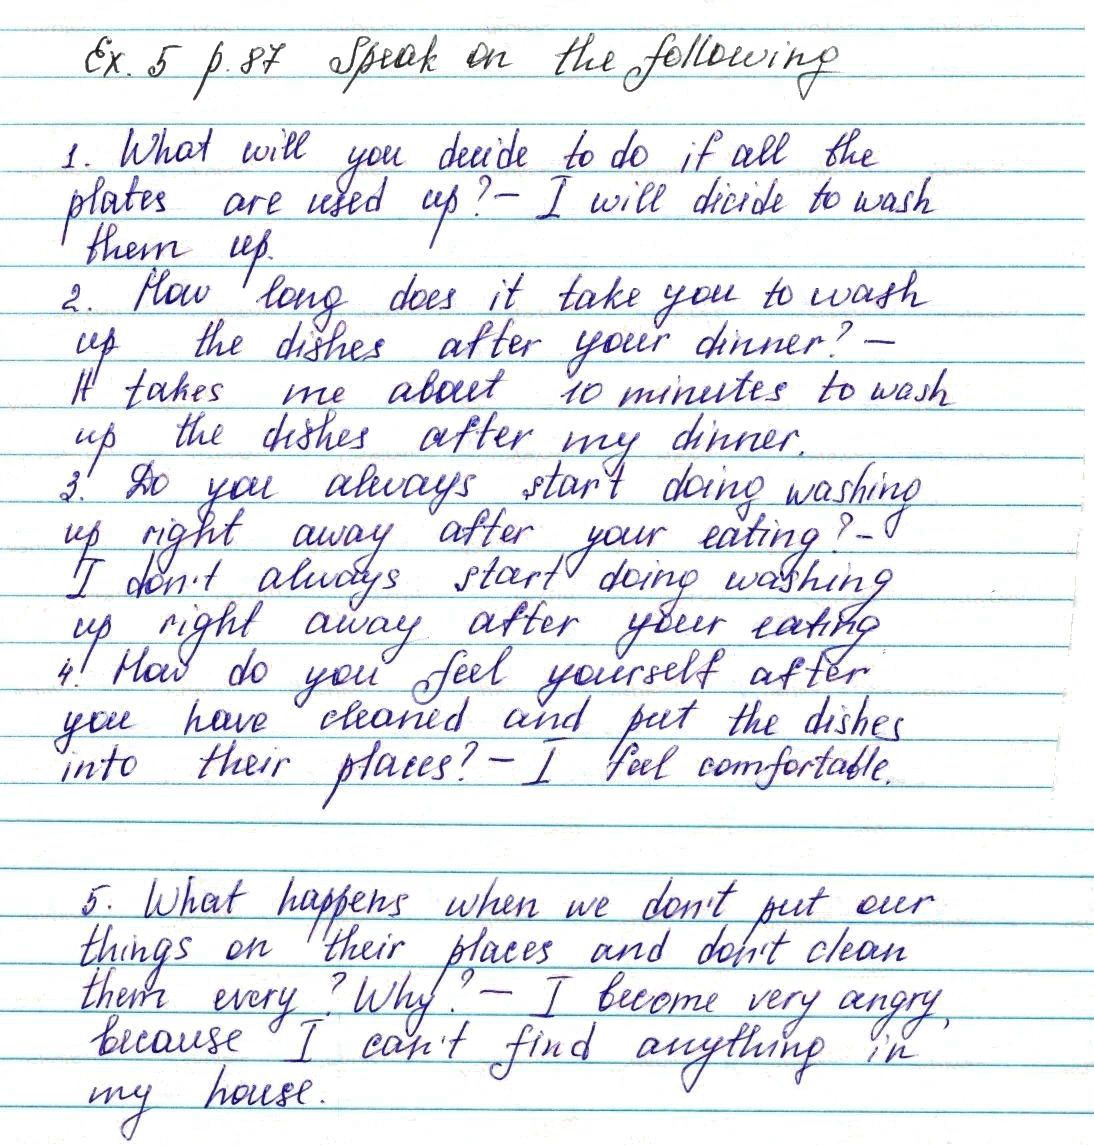 Ex. 5 p. 87 Speak on the following
1. What will you decide to do if all the
plates are used up? – I will dicide to wash
them up.
2. How long does it take you to wash
up the dishes after your dinner? –
It takes me about 10 minutes to wash
up the dishes after my dinner.
3. Do you always start doing washing
up right away after your eating? –
I don't always start doing washing
up right away after your eating
4. How do you feel yourself after
you have cleaned and put the dishes
into their places? – I feel comfortable.
5. What happens when we don't put our
things on their places and don't clean
them every? Why? – I become very angry,
because I can't find anything in
my house.